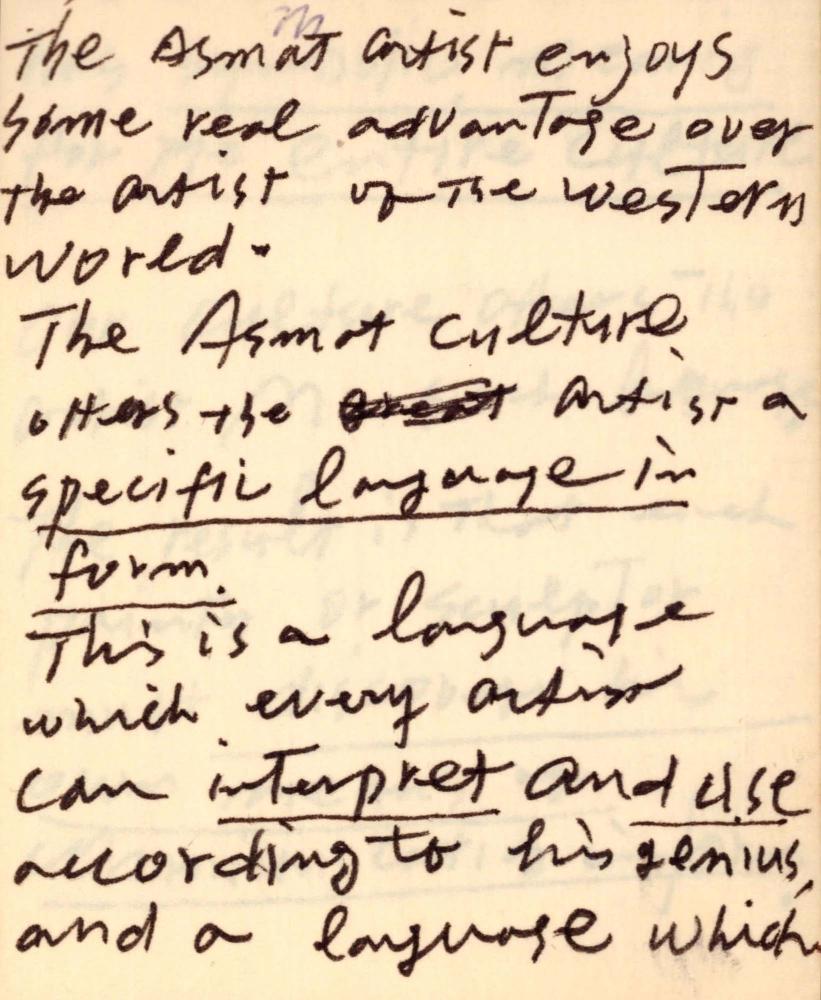 The Asmat artist enjoys
some real advantage over
the artist of the western
world.
The Asmat culture
offers the artist a
specific language in
form.
This is a language
which every artist
can interpret and use
according to his genius,
and a language which